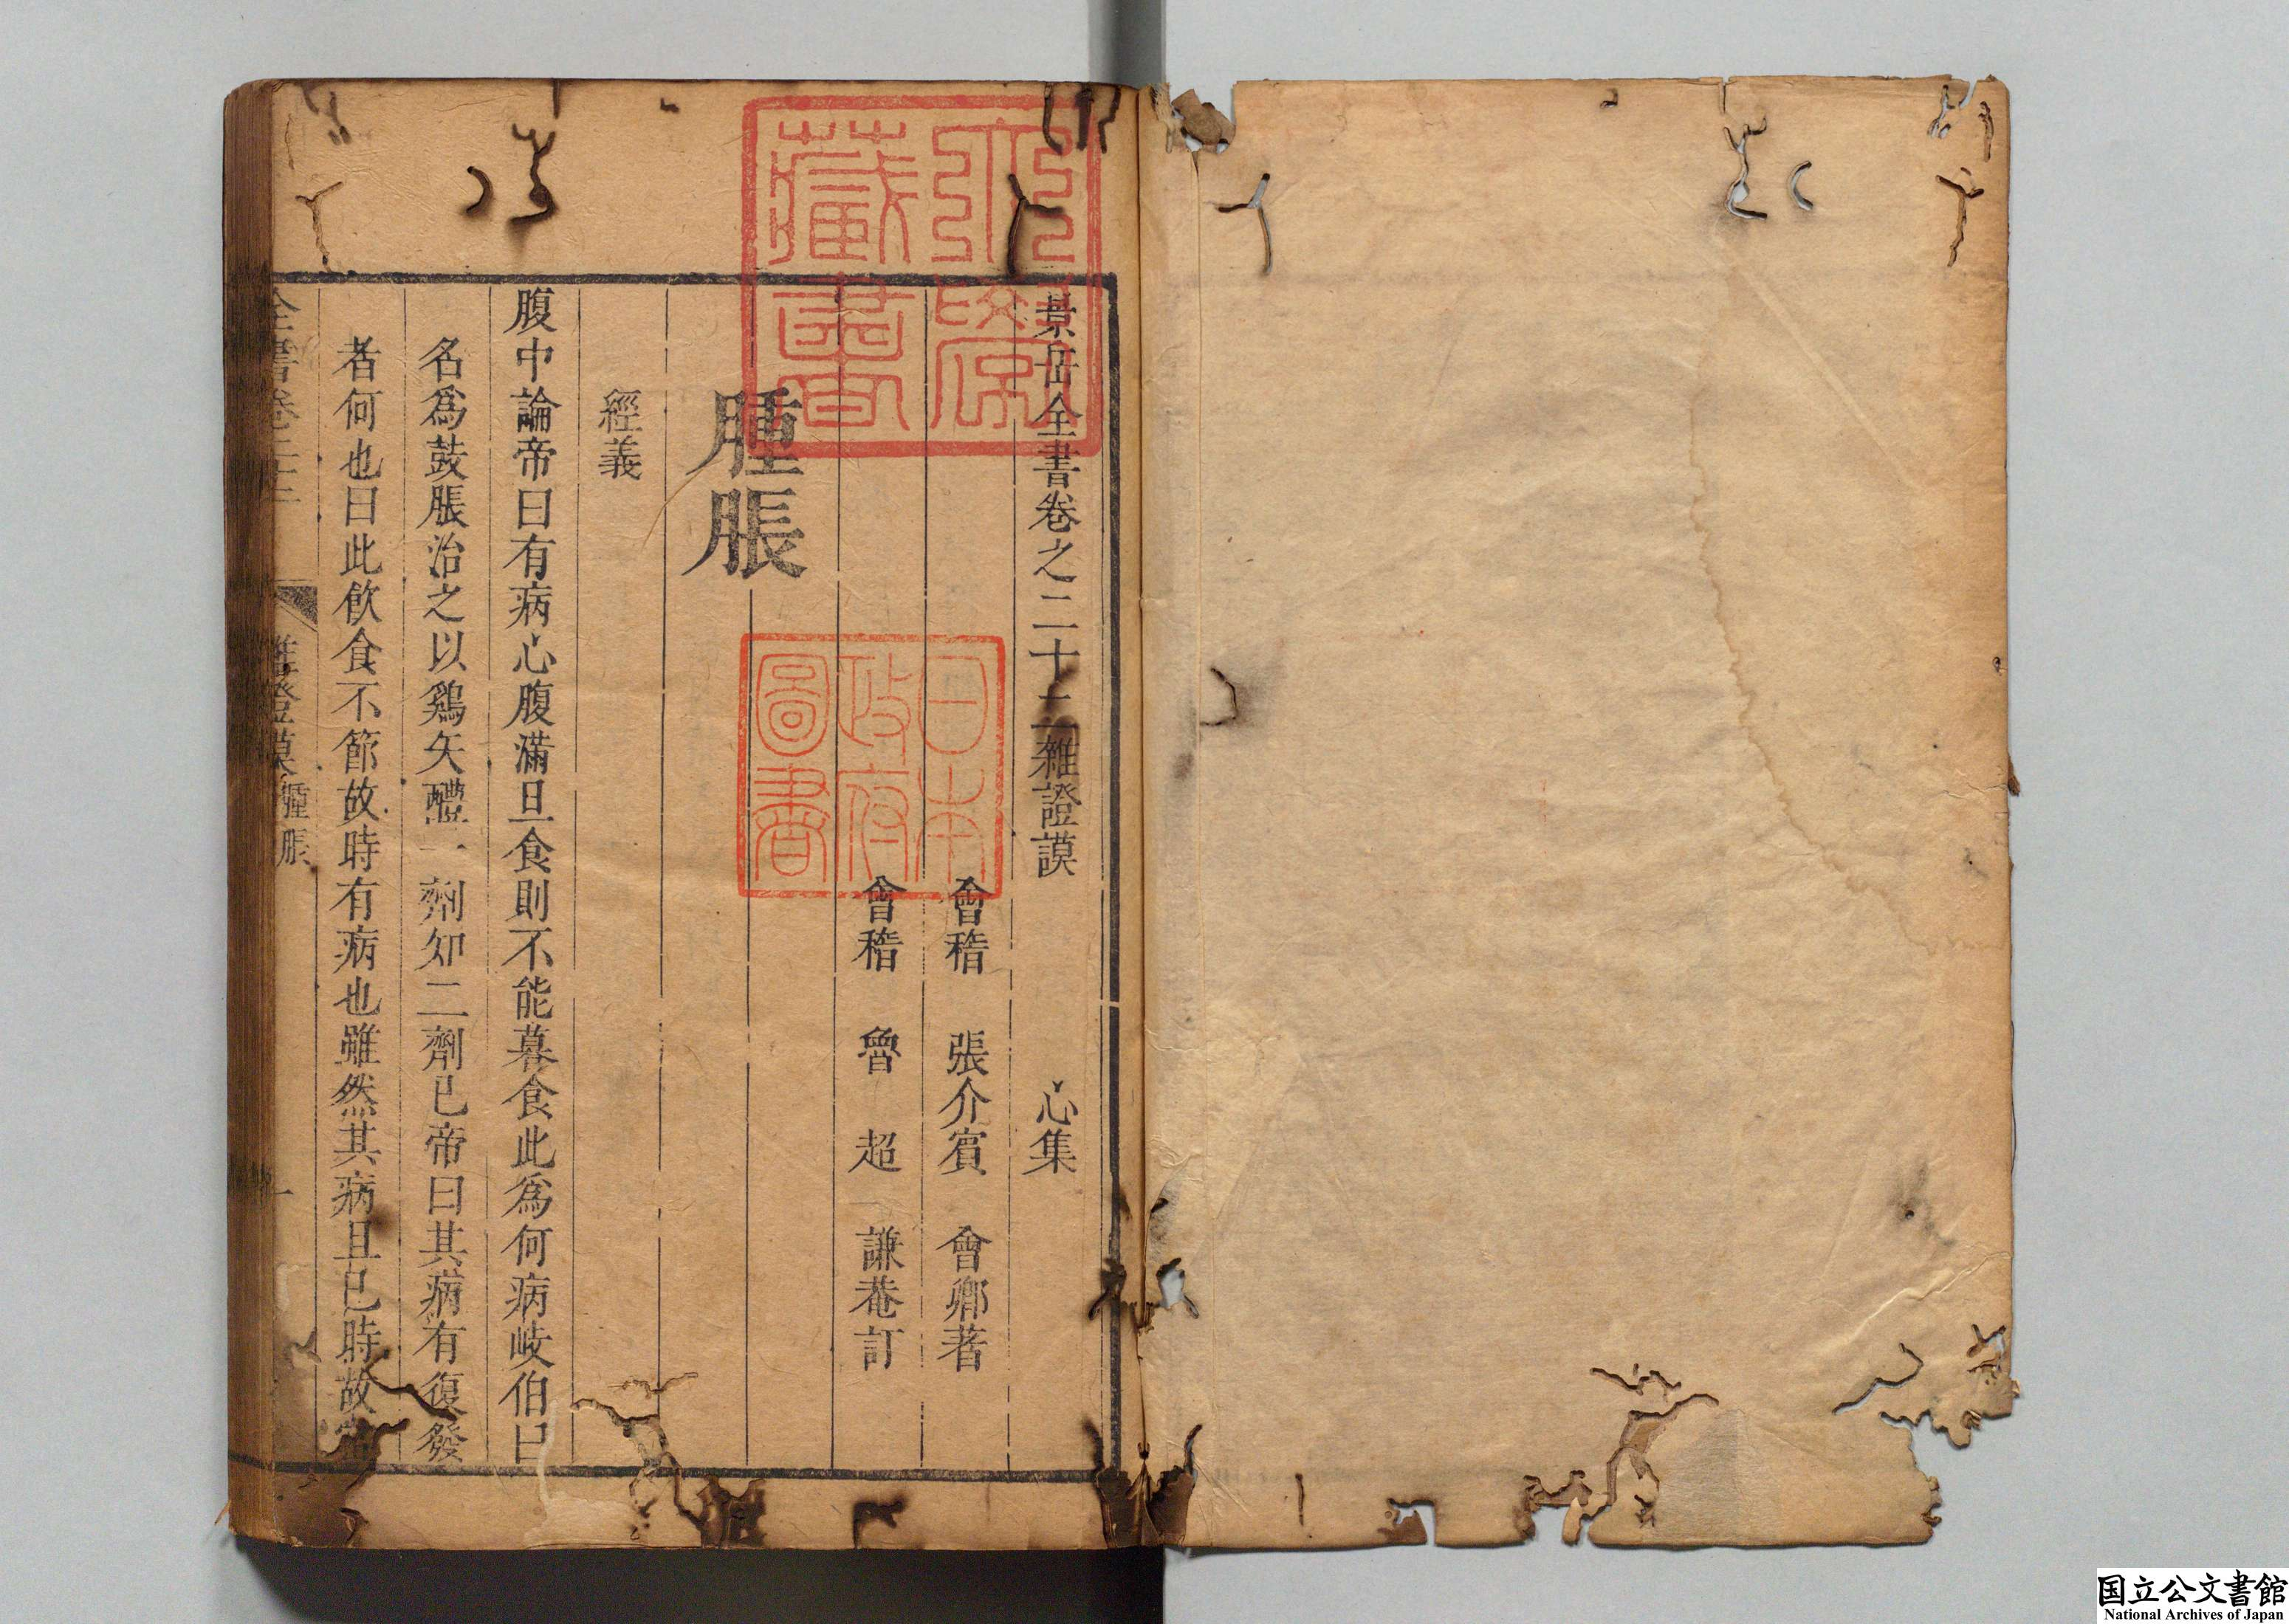 景岳全書卷之二十二雜證謨　心集
會稽　張介賓　會卿著
會稽　魯　超　謙菴訂
腫脹
經義
腹中論帝曰有病心腹滿旦食則不能暮食此爲何病岐伯曰
名爲鼓脹治之以鷄矢醴一劑知二劑已帝曰其病有復發
者何也曰此飲食不節故時有病也雖然其病且已時故當
全書卷二十二　雜證謨　腫脹　一
藏書
日本
政府
圖書
国立公文書館
National Archives of Japan